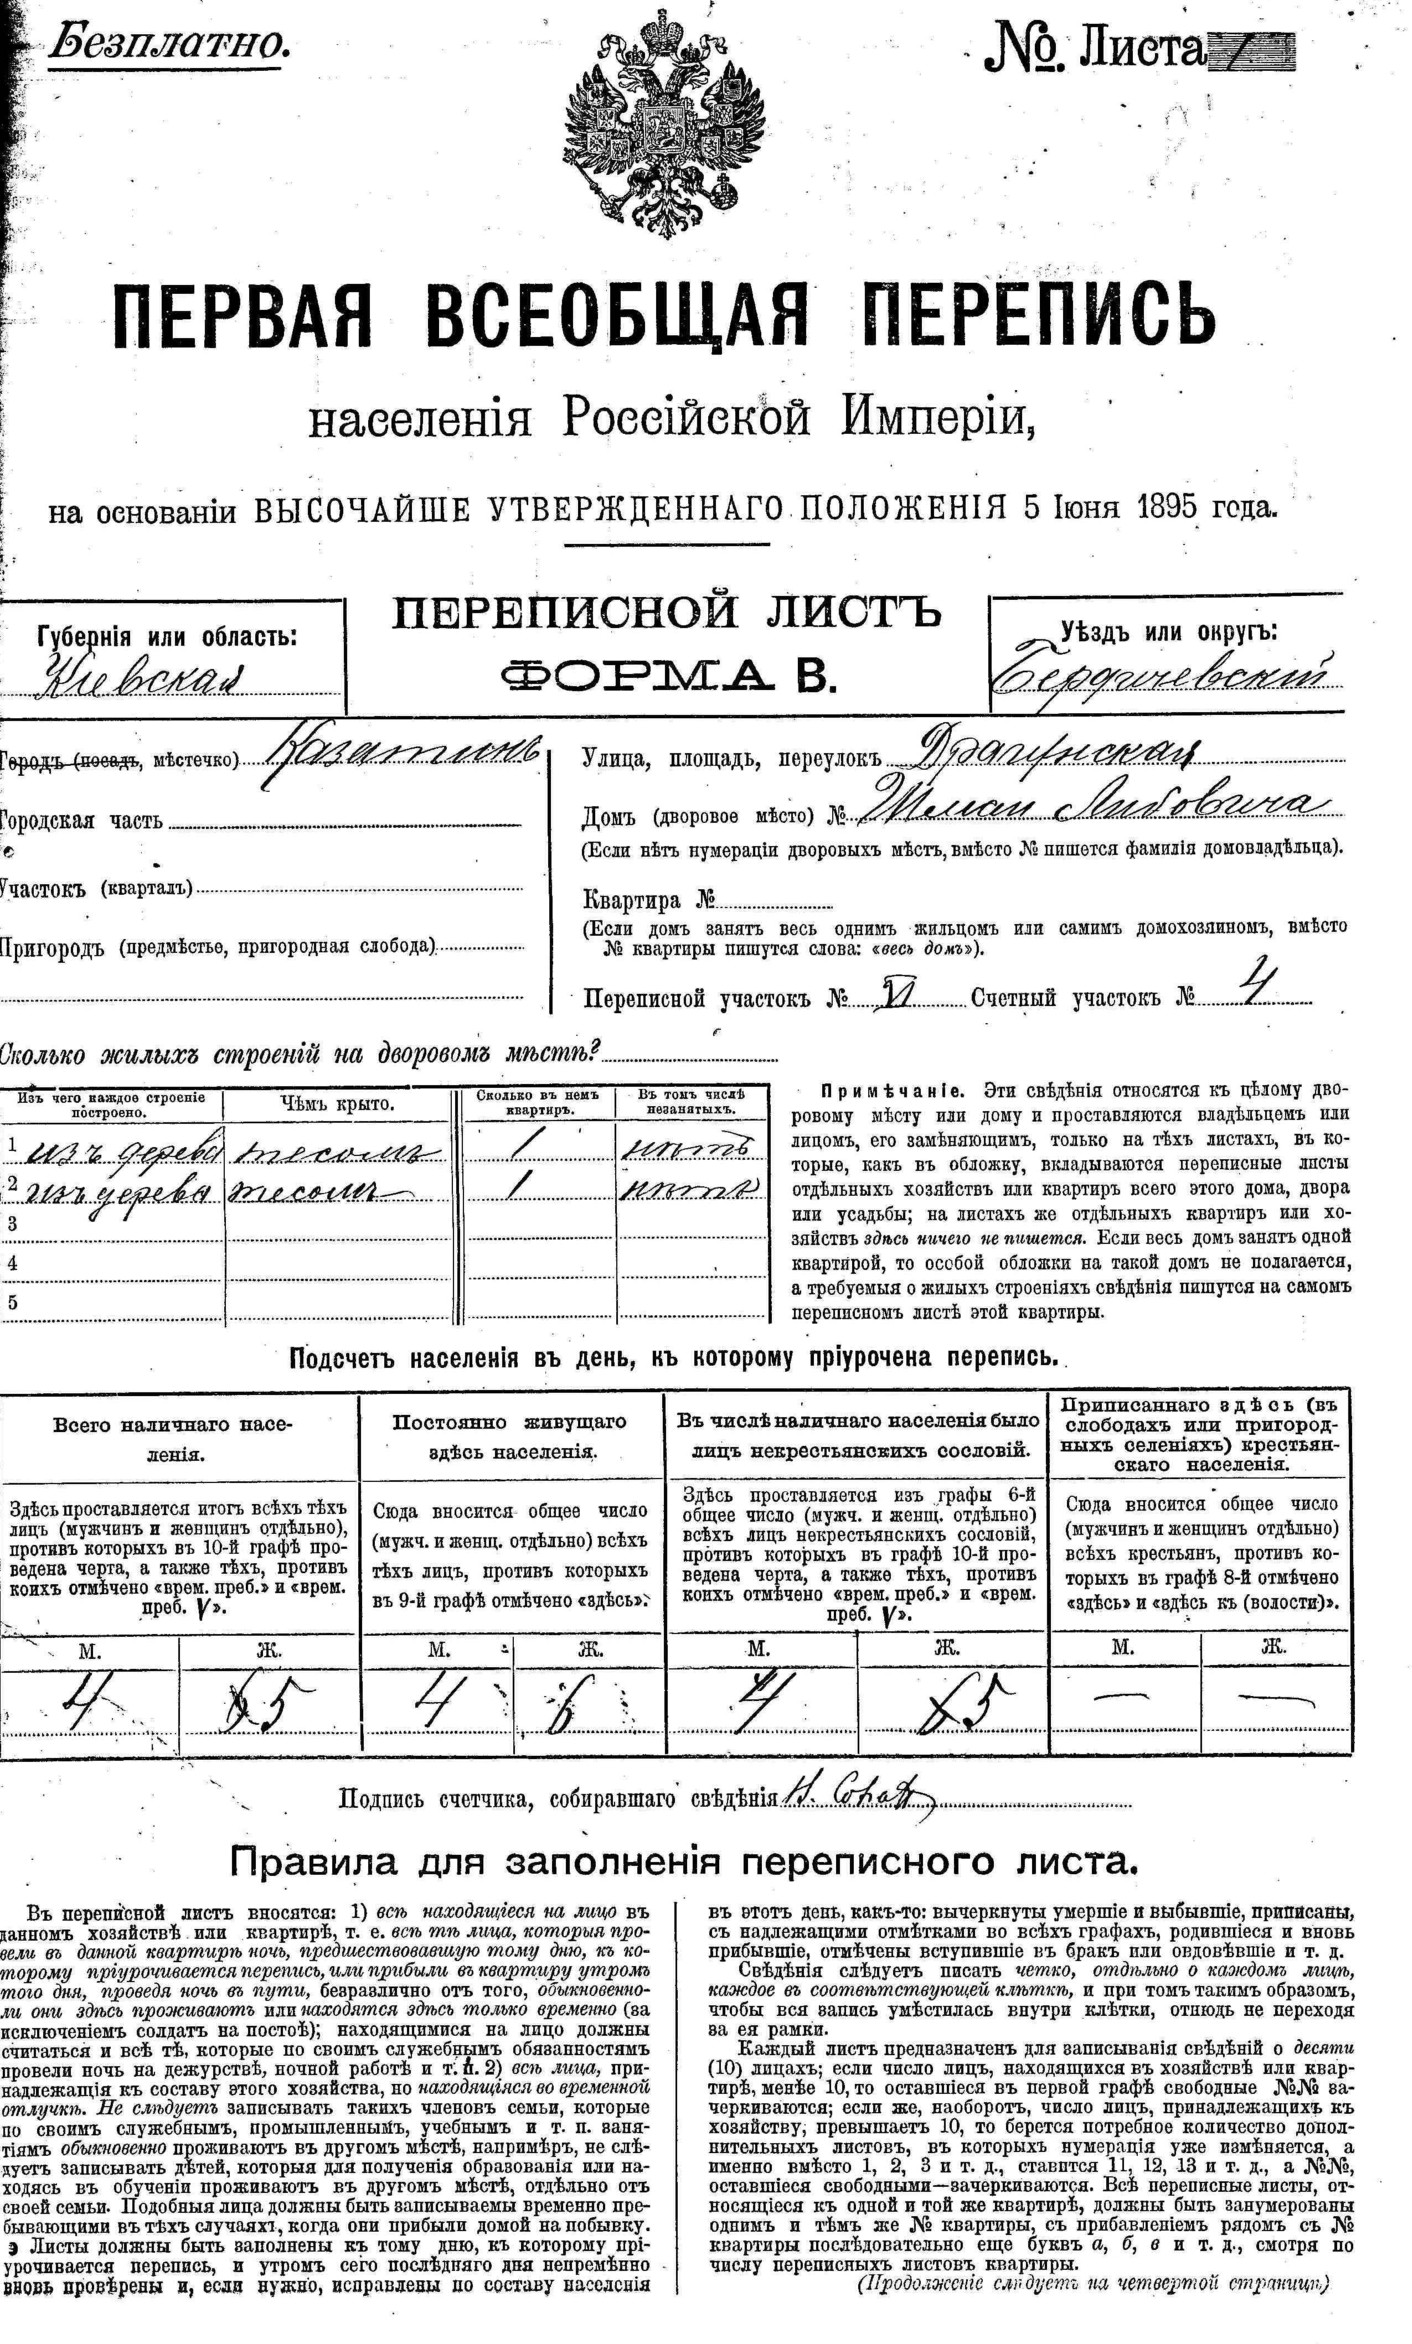 Безплатно.
№. Листа 1
ПЕРВАЯ ВСЕОБЩАЯ ПЕРЕПИСЬ
населенія Россійской Имперіи,
на основаніи ВЫСОЧАЙШЕ УТВЕРЖДЕННАГО ПОЛОЖЕНІЯ 5 Іюня 1895 года.
ПЕРЕПИСНОЙ ЛИСТЪ
ФОРМА В.
Губернія или область:
Кіевская
Уѣздъ или округъ:
Бердичевскій
Городъ (посадъ, мѣстечко) Казатинъ
Городская часть
Участокъ (кварталъ)
Пригородъ (предмѣстье, пригородная слобода)
Улица, площадь, переулокъ Драгунская
Домъ (дворовое мѣсто) № Либовича
(Если нѣтъ нумераціи дворовыхъ мѣстъ, вмѣсто № пишется фамилія домовладѣльца).
Квартира №
(Если домъ занятъ весь однимъ жильцомъ или самимъ домохозяиномъ, вмѣсто
№ квартиры пишутся слова: «весь домъ»).
Переписной участокъ № VI Счетный участокъ № 4
Сколько жилыхъ строеній на дворовомъ мѣстѣ?
Изъ чего каждое строеніе
построено.
Чѣмъ крыто.
Сколько въ немъ
квартиръ.
Въ томъ числѣ
незанятыхъ.
1 изъ дерева тесомъ 1 нѣтъ
2 изъ дерева тесомъ 1 нѣтъ
3
4
5
Примѣчаніе. Эти свѣдѣнія относятся къ цѣлому дво-
ровому мѣсту или дому и проставляются владѣльцемъ или
лицомъ, его замѣняющимъ, только на тѣхъ листахъ, въ ко-
торые, какъ въ обложку, вкладываются переписные листы
отдѣльныхъ хозяйствъ или квартиръ всего этого дома, двора
или усадьбы; на листахъ же отдѣльныхъ квартиръ или хо-
зяйствъ здѣсь ничего не пишется. Если весь домъ занятъ одной
квартирой, то особой обложки на такой домъ не полагается,
а требуемыя о жилыхъ строеніяхъ свѣдѣнія пишутся на самомъ
переписномъ листѣ этой квартиры.
Подсчетъ населенія въ день, къ которому пріурочена перепись.
Всего наличнаго насе-
ленія.
Здѣсь проставляется итогъ всѣхъ тѣхъ
лицъ (мужчинъ и женщинъ отдѣльно),
противъ которыхъ въ 10-й графѣ про-
ведена черта, а также тѣхъ, противъ
коихъ отмѣчено «врем. преб.» и «врем.
преб. V».
Постоянно живущаго
здѣсь населенія.
Сюда вносится общее число
(мужч. и женщ. отдѣльно) всѣхъ
тѣхъ лицъ, противъ которыхъ
въ 9-й графѣ отмѣчено «здѣсь».
Въ числѣ наличнаго населенія было
лицъ некрестьянскихъ сословій.
Здѣсь проставляется изъ графы 6-й
общее число (мужч. и женщ. отдѣльно)
всѣхъ лицъ некрестьянскихъ сословій,
противъ которыхъ въ графѣ 10-й про-
ведена черта, а также тѣхъ, противъ
коихъ отмѣчено «врем. преб.» и «врем.
преб. V».
Приписаннаго здѣсь (въ
слободахъ или пригород-
ныхъ селеніяхъ) крестьян-
скаго населенія.
Сюда вносится общее число
(мужчинъ и женщинъ отдѣльно)
всѣхъ крестьянъ, противъ ко-
торыхъ въ графѣ 8-й отмѣчено
«здѣсь» и «здѣсь къ (волости)».
М. Ж. М. Ж. М. Ж. М. Ж.
4 6 5 4 6 4 6 5 — —
Подпись счетчика, собиравшаго свѣдѣнія
Правила для заполненія переписного листа.
Въ переписной листъ вносятся: 1) всѣ находящіеся на лицо въ
данномъ хозяйствѣ или квартирѣ, т. е. всѣ тѣ лица, которыя про-
вели въ данной квартирѣ ночь, предшествовавшую тому дню, къ ко-
торому пріурочивается перепись, или прибыли въ квартиру утромъ
того дня, проведя ночь въ пути, безразлично отъ того, обыкновенно-
ли они здѣсь проживаютъ или находятся здѣсь только временно (за
исключеніемъ солдатъ на постоѣ); находящимися на лицо должны
считаться и всѣ тѣ, которые по своимъ служебнымъ обязанностямъ
провели ночь на дежурствѣ, ночной работѣ и т. п. 2) всѣ лица, при-
надлежащія къ составу этого хозяйства, но находящіяся во временной
отлучкѣ. Не слѣдуетъ записывать такихъ членовъ семьи, которые
по своимъ служебнымъ, промышленнымъ, учебнымъ и т. п. заня-
тіямъ обыкновенно проживаютъ въ другомъ мѣстѣ, напримѣръ, не слѣ-
дуетъ записывать дѣтей, которыя для полученія образованія или на-
ходясь въ обученіи проживаютъ въ другомъ мѣстѣ, отдѣльно отъ
своей семьи. Подобныя лица должны быть записываемы временно пре-
бывающими въ тѣхъ случаяхъ, когда они прибыли домой на побывку.
Листы должны быть заполнены къ тому дню, къ которому прі-
урочивается перепись, и утромъ сего послѣдняго дня непремѣнно
вновь провѣрены и, если нужно, исправлены по составу населенія
въ этотъ день, какъ-то: вычеркнуты умершіе и выбывшіе, приписаны,
съ надлежащими отмѣтками во всѣхъ графахъ, родившіеся и вновь
прибывшіе, отмѣчены вступившіе въ бракъ или овдовѣвшіе и т. д.
Свѣдѣнія слѣдуетъ писать четко, отдѣльно о каждомъ лицѣ,
каждое въ соотвѣтствующей клѣткѣ, и при томъ такимъ образомъ,
чтобы вся запись умѣстилась внутри клѣтки, отнюдь не переходя
за ея рамки.
Каждый листъ предназначенъ для записыванія свѣдѣній о десяти
(10) лицахъ; если число лицъ, находящихся въ хозяйствѣ или квар-
тирѣ, менѣе 10, то оставшіеся въ первой графѣ свободные №№ за-
черкиваются; если же, наоборотъ, число лицъ, принадлежащихъ къ
хозяйству, превышаетъ 10, то берется потребное количество допол-
нительныхъ листовъ, въ которыхъ нумерація уже измѣняется, а
именно вмѣсто 1, 2, 3 и т. д., ставится 11, 12, 13 и т. д., а №№,
оставшіеся свободными—зачеркиваются. Всѣ переписные листы, от-
носящіеся къ одной и той же квартирѣ, должны быть занумерованы
однимъ и тѣмъ же № квартиры, съ прибавленіемъ рядомъ съ №
квартиры послѣдовательно еще буквъ а, б, в и т. д., смотря по
числу переписныхъ листовъ квартиры.
(Продолженіе слѣдуетъ на четвертой страницѣ)